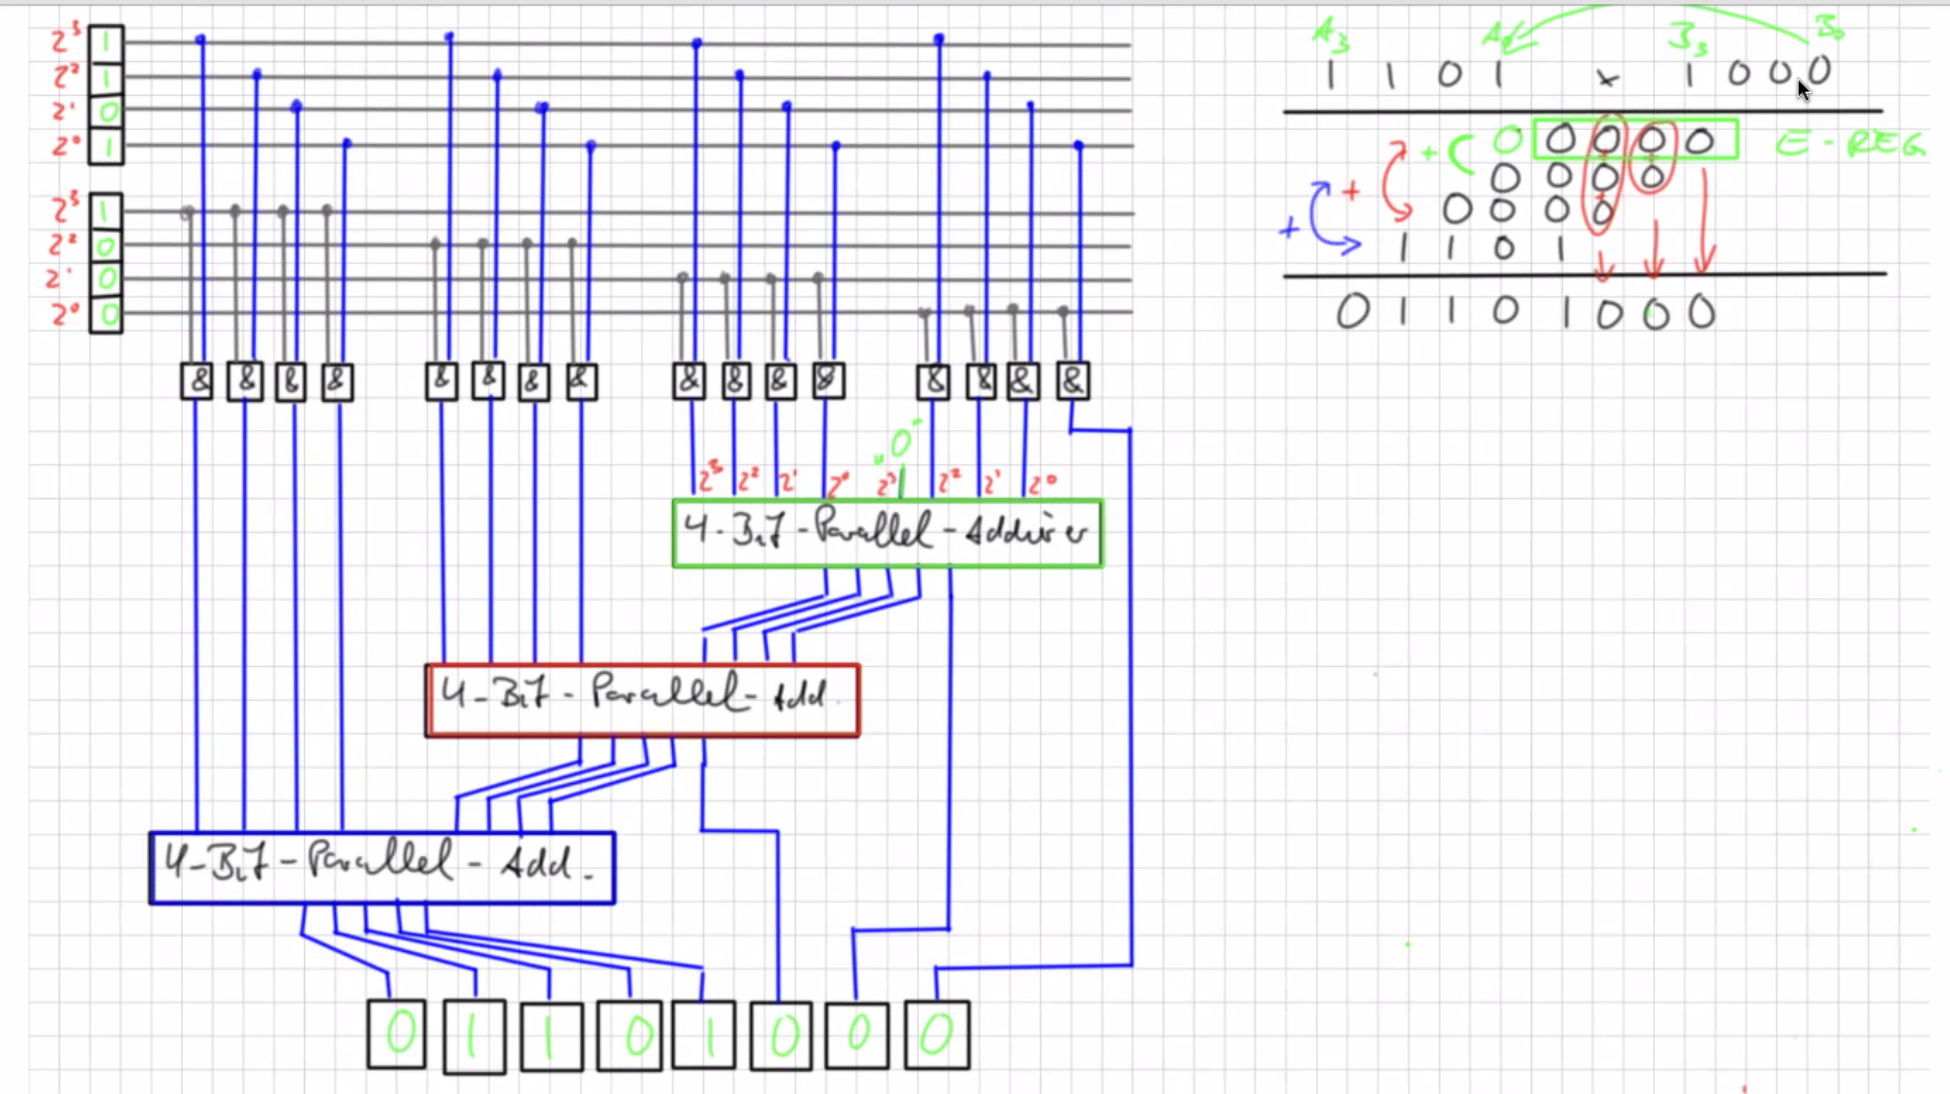 2³ 1
2² 1
2¹ 0
2⁰ 1
2³ 1
2² 0
2¹ 0
2⁰ 0
& & & & & & & & & & & & & & & &
"0"
2³ 2² 2¹ 2⁰ 2³ 2² 2¹ 2⁰
4-Bit-Parallel-Addierer
4-Bit-Parallel-Add.
4-Bit-Parallel-Add.
0 1 1 0 1 0 0 0
A₃ A₀ B₃ B₀
1 1 0 1 x 1 0 0 0
+ 0 0 0 0 0 E-REG
+ 0 0 0 0
+ 0 0 0 0
1 1 0 1
0 1 1 0 1 0 0 0